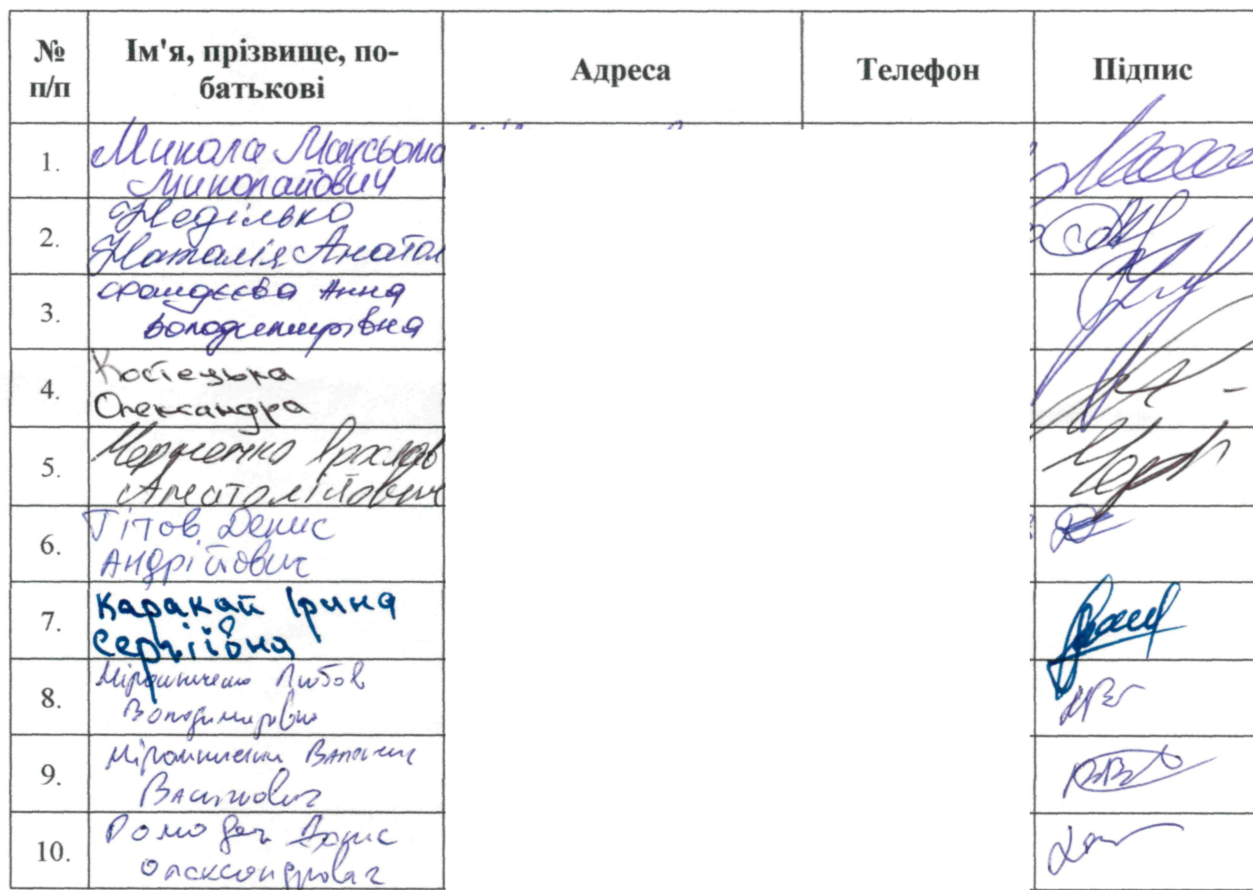 № п/п Ім'я, прізвище, по-батькові Адреса Телефон Підпис
1. Микола Максьома
Миколайович
2. Неділько
Наталія Анатол
3. Анна
Володимирівна
4. Костецька
Олександра
5. Марченко Ярослав
Анатолійович
6. Тітов Денис
Андрійович
7. Каракай Ірина
Сергіївна
8. Мірошниченко Любов
Володимирівна
9. Мірошниченко
Васильович
10. Борис
Олександрович